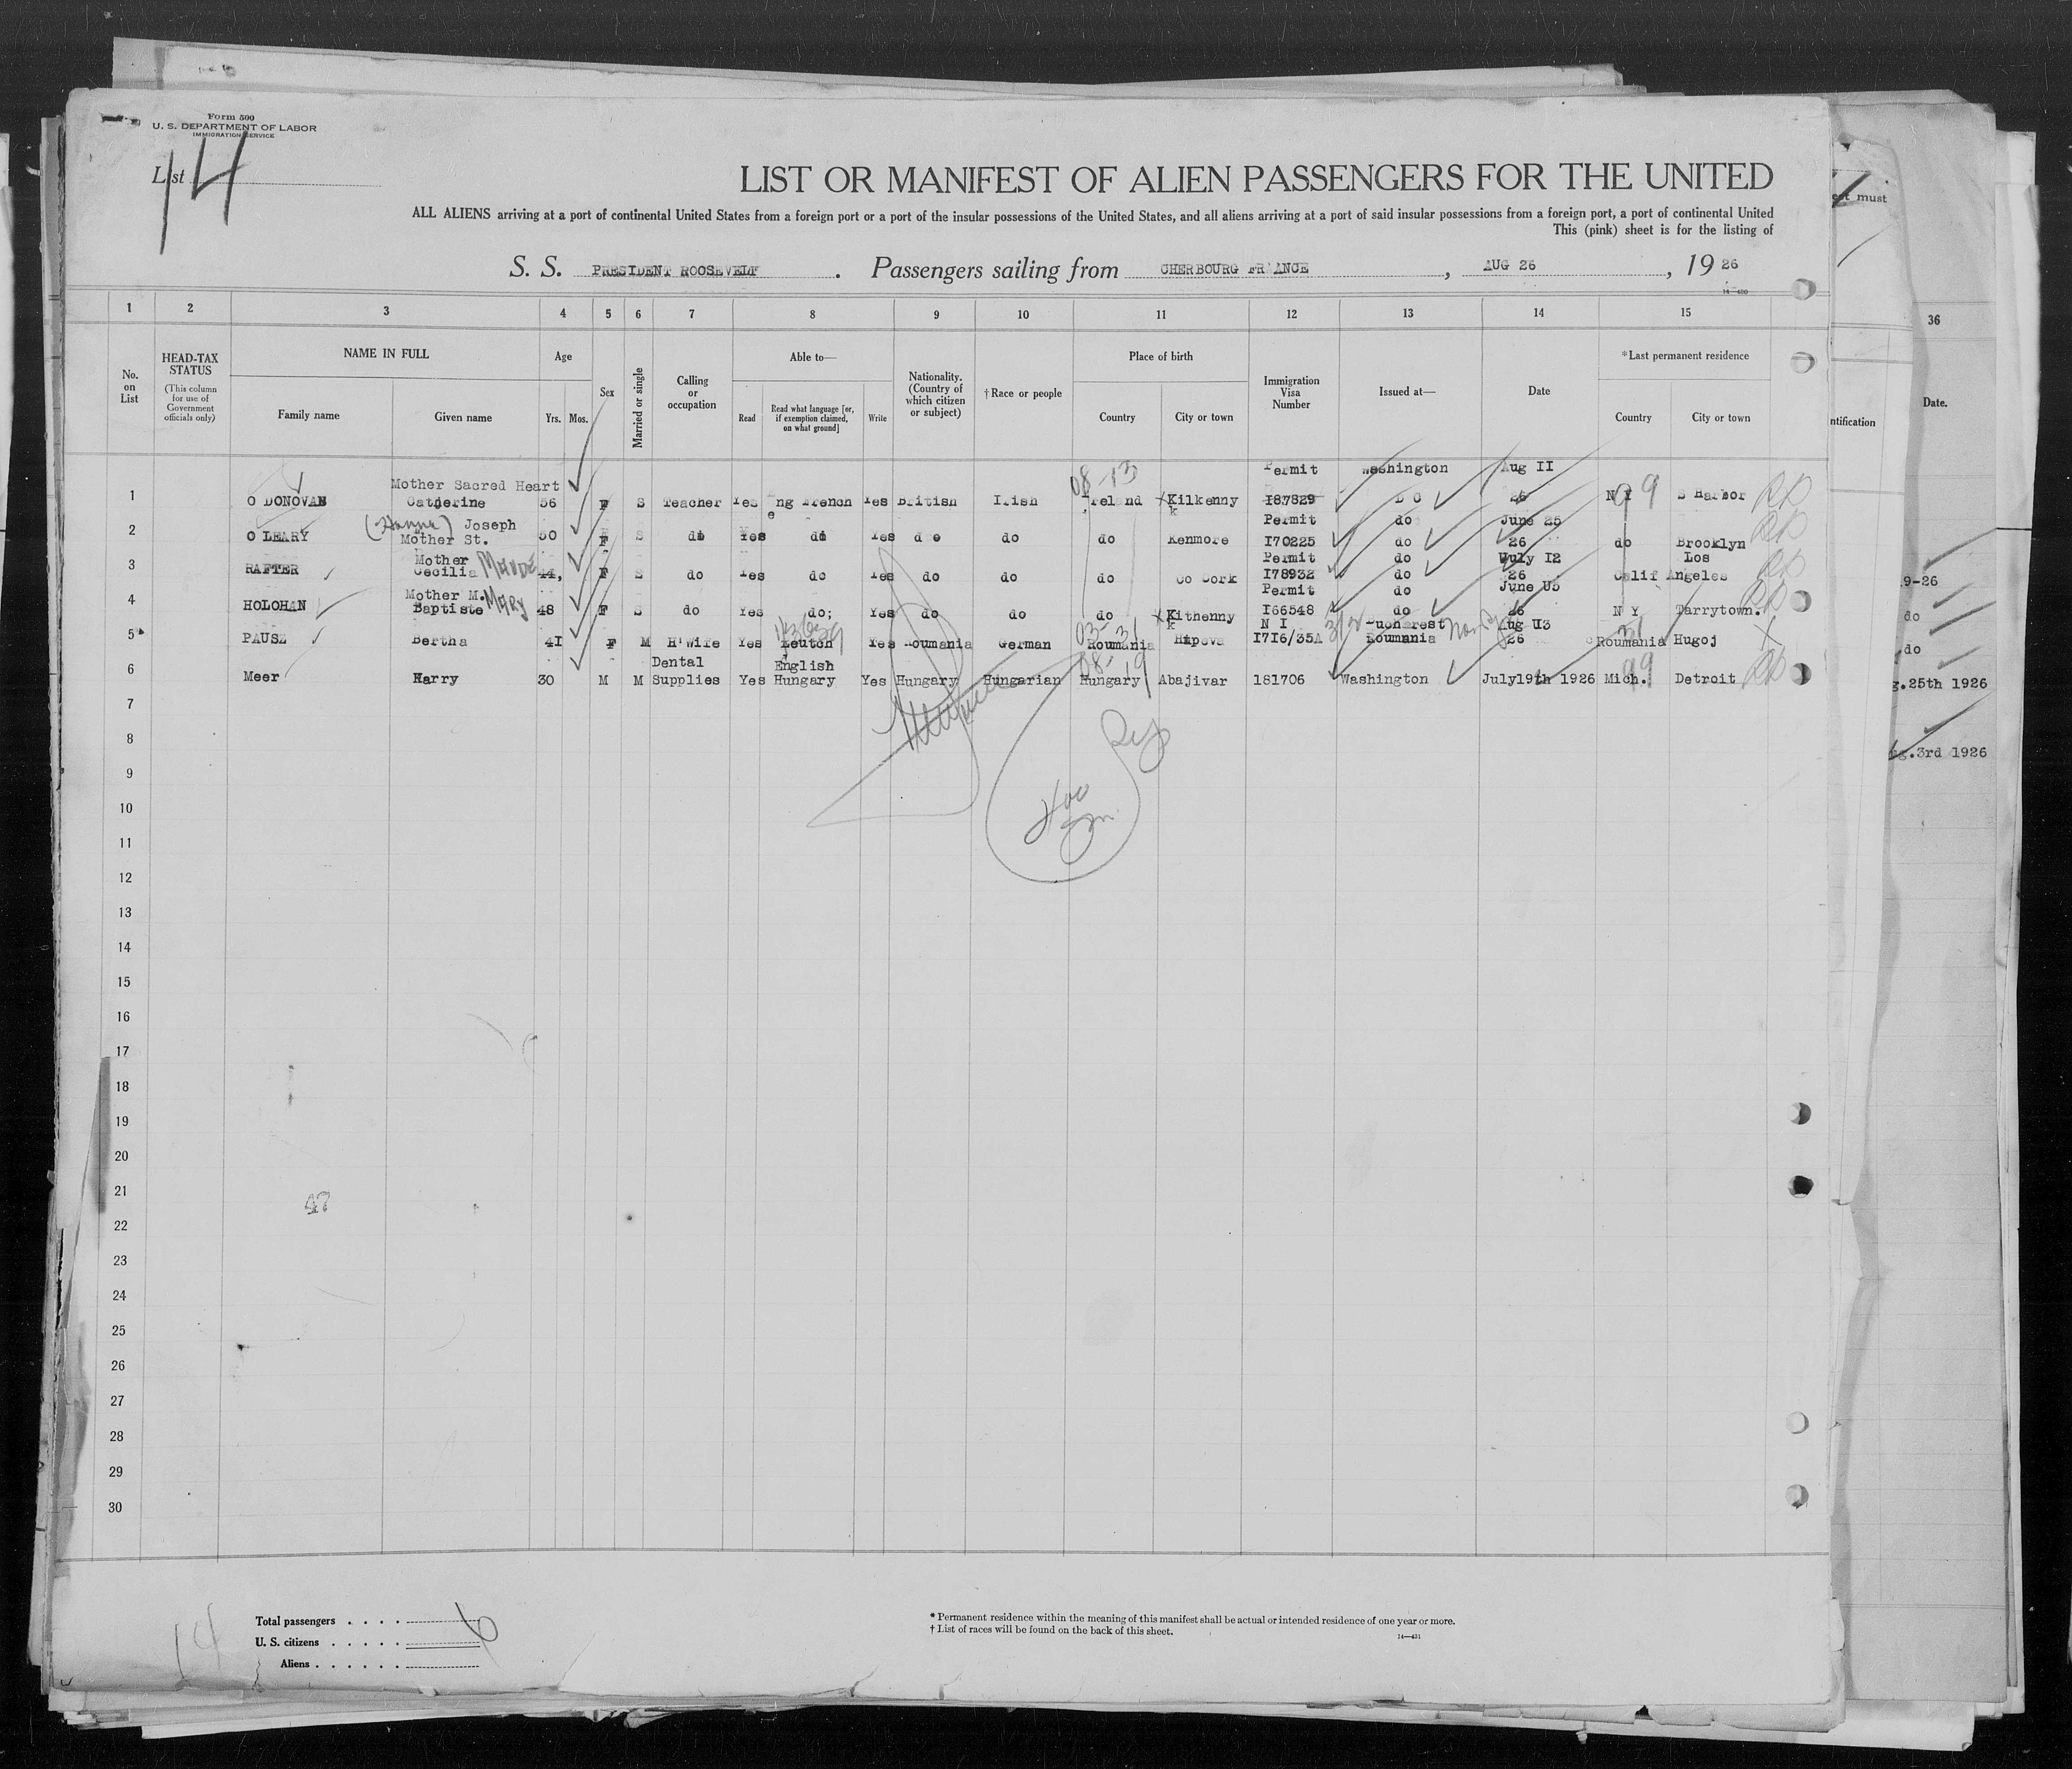 Form 500
U. S. DEPARTMENT OF LABOR
IMMIGRATION SERVICE
List 14
LIST OR MANIFEST OF ALIEN PASSENGERS FOR THE UNITED
ALL ALIENS arriving at a port of continental United States from a foreign port or a port of the insular possessions of the United States, and all aliens arriving at a port of said insular possessions from a foreign port, a port of continental United
This (pink) sheet is for the listing of
S. S. PRESIDENT ROOSEVELT . Passengers sailing from CHERBOURG FRANCE , AUG 26 , 19 26
14—430
1 2 3 4 5 6 7 8 9 10 11 12 13 14 15
No. on List
HEAD-TAX STATUS
(This column for use of Government officials only)
NAME IN FULL
Family name Given name
Age
Yrs. Mos.
Sex
Married or single
Calling or occupation
Able to—
Read Read what language [or, if exemption claimed, on what ground] Write
Nationality. (Country of which citizen or subject)
† Race or people
Place of birth
Country City or town
Immigration Visa Number
Issued at—
Date
*Last permanent residence
Country City or town
Mother Sacred Heart 08-13 Permit Washington Aug II
1 O DONOVAN Catherine 56 F S Teacher Yes Eng French Yes British Irish Ireland Kilkenny I87829 D C 26 N Y 99 S Harbor
(Hanna) Joseph Permit do June 25
2 O LEARY Mother St. 50 F S do Yes do Yes do do do Kenmore I70225 do 26 do Brooklyn
Mother Permit do July I2 Los
3 RAFTER Cecilia MAUDE 44, F S do Yes do Yes do do do Co Cork I78932 do 26 Calif Angeles
Mother M. Permit do June 05
4 HOLOHAN Baptiste MARY 48 F S do Yes do; Yes do do do Kithenny I66548 do 26 N Y Tarrytown.
N I Bucharest Aug U3
5 PAUSZ Bertha 4I F M H'wife Yes Deutch Yes Roumania German Roumania I7I6/35A Roumania 26 Roumania Hugoj
Dental English 08-19
6 Meer Harry 30 M M Supplies Yes Hungary Yes Hungary Hungarian Hungary Abajivar 181706 Washington July19th 1926 Mich. 99 Detroit
7
8
9
10
11
12
13
14
15
16
17
18
19
20
21
22
23
24
25
26
27
28
29
30
Total passengers 6
U. S. citizens
Aliens
14
* Permanent residence within the meaning of this manifest shall be actual or intended residence of one year or more.
† List of races will be found on the back of this sheet.
14—431
must
36
Date.
ntification
9-26
do
do
g.25th 1926
g.3rd 1926